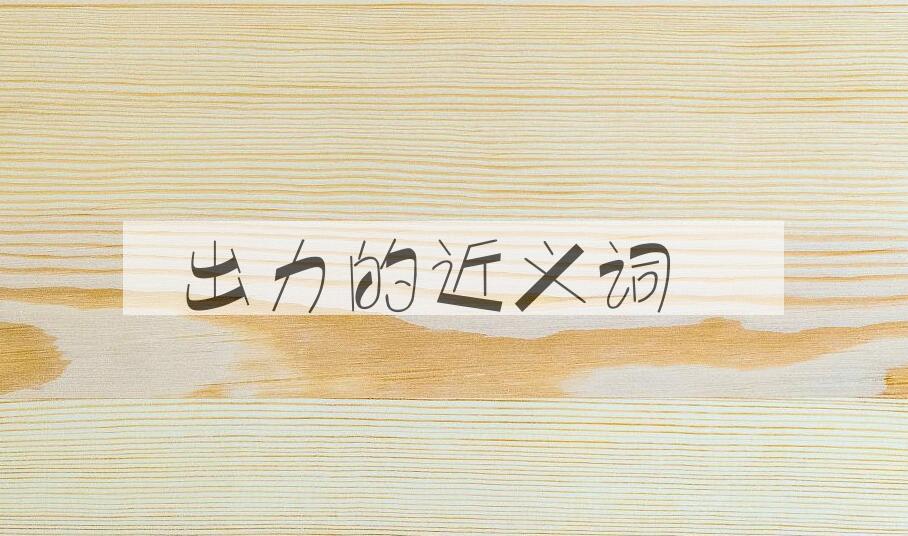 出力的近义词